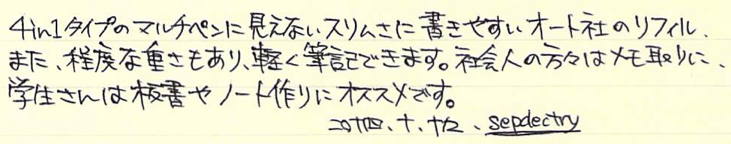 4in1タイプのマルチペンに見えないスリムさに書きやすいオート社のリフィル、
また、程度な重さもあり、軽く筆記できます。社会人の方々はメモ取りに、
学生さんは板書やノート作りにオススメです。
sepdectry